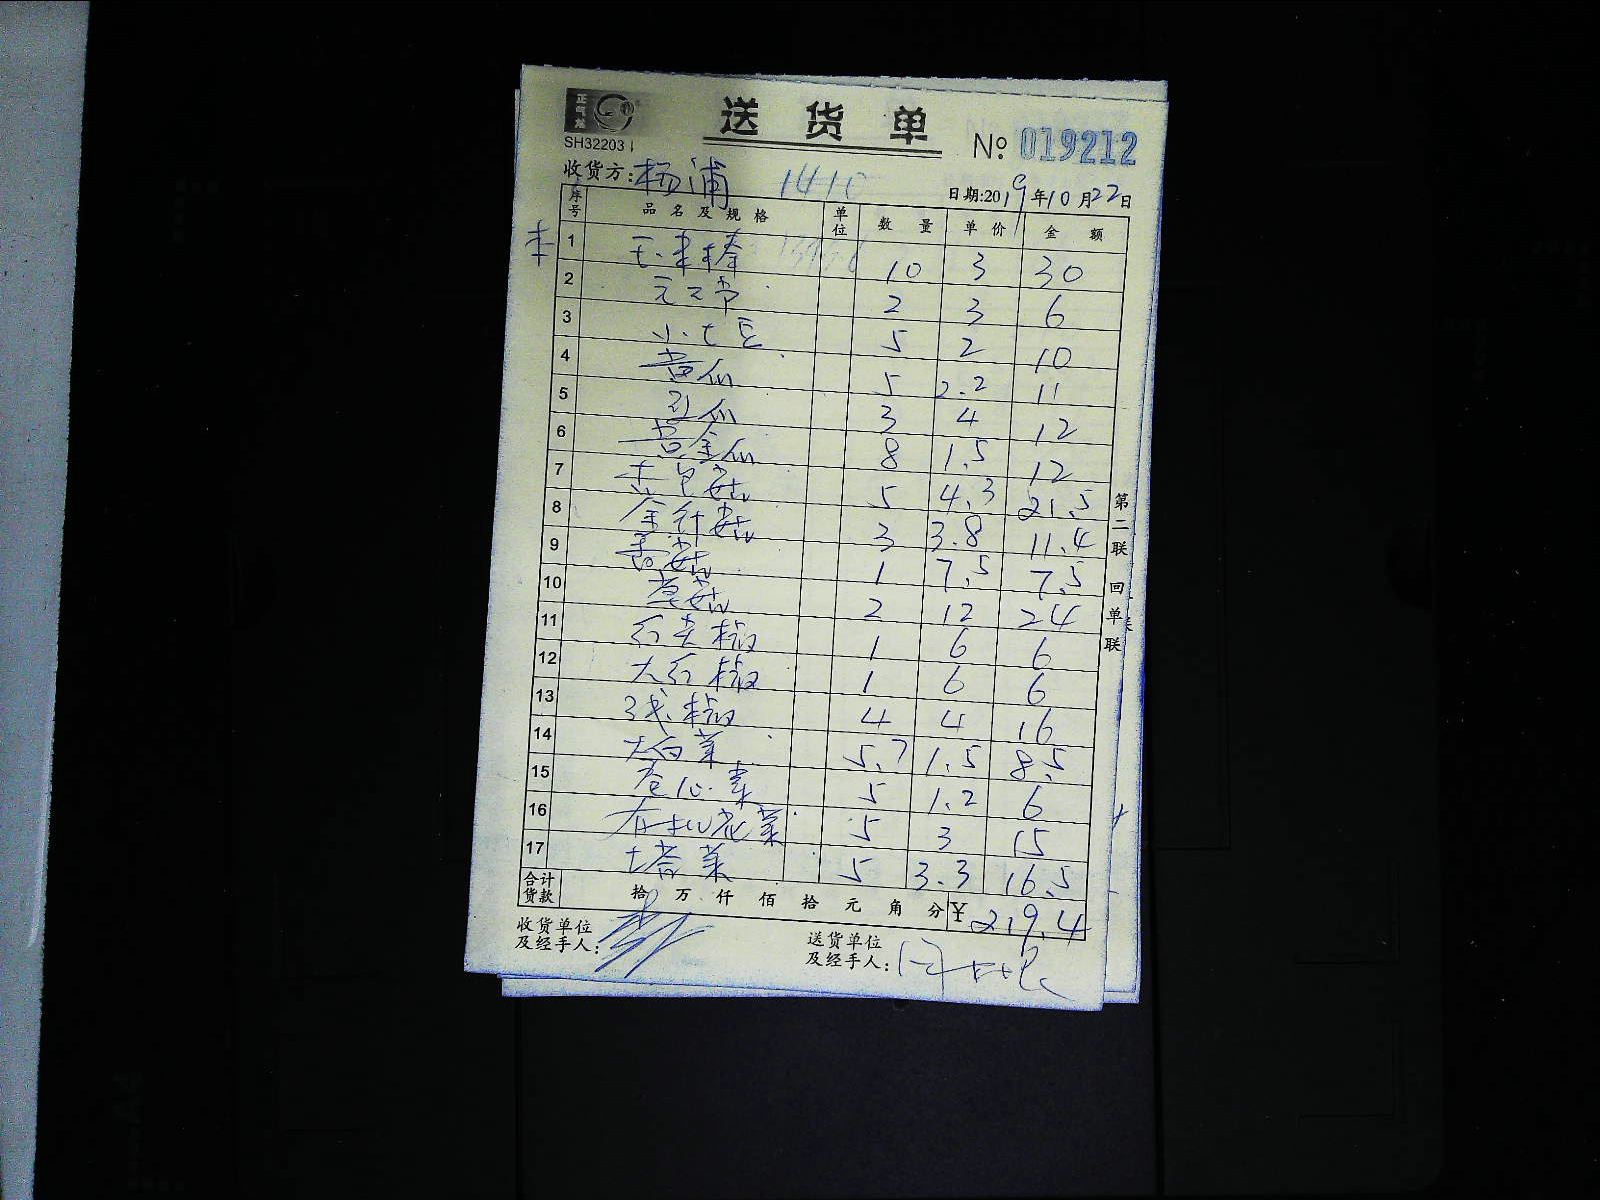 送货单
№ 019212
SH32203
收货方:杨浦 1410
日期:2019年10月22日
序号 品名及规格 单位 数量 单价 金额
1 玉米棒 10 3 30
2 2 3 6
3 小土豆 5 2 10
4 黄瓜 5 2.2 11
5 3 4 12
6 黄金瓜 8 1.5 12
7 杏包菇 5 4.3 21.5
8 金针菇 3 3.8 11.4
9 香菇 1 7.5 7.5
10 草菇 2 12 24
11 红尖椒 1 6 6
12 大红椒 1 6 6
13 线椒 4 4 16
14 大白菜 5.7 1.5 8.5
15 卷心菜 5 1.2 6
16 有机花菜 5 3 15
17 塔菜 5 3.3 16.5
合计货款 拾 万 仟 佰 拾 元 角 分 ¥219.4
收货单位及经手人:
送货单位及经手人:
第二联 回单联